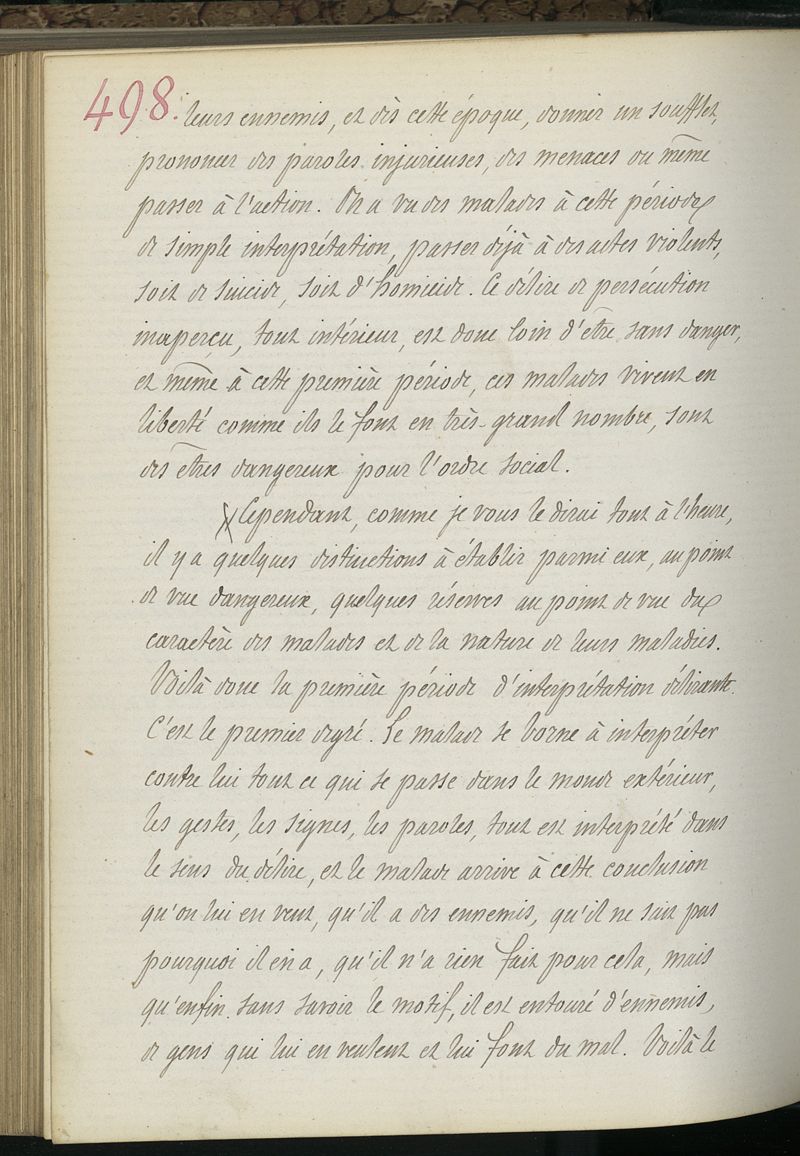 498. leurs ennemis, et dès cette époque, donner un soufflet,
prononcer des paroles injurieuses, des menaces ou même
passer à l'action. On a vu des malades à cette période
de simple interprétation, passer déjà à des actes violents,
soit de suicide, soit d'homicide. Ce délire de persécution
inaperçu, tout intérieur, est donc loin d'être sans danger,
et même à cette première période, ces malades vivent en
liberté comme ils le font en très-grand nombre, sont
des êtres dangereux pour l'ordre social.
Cependant, comme je vous le dirai tout à l'heure,
il y a quelques distinctions à établir parmi eux, au point
de vue dangereux, quelques réserves au point de vue du
caractère des malades et de la nature de leurs maladies.
Voilà donc la première période d'interprétation délirante.
C'est le premier degré. Le malade se borne à interpréter
contre lui tout ce qui se passe dans le monde extérieur,
les gestes, les signes, les paroles, tout est interprété dans
le sens du délire, et le malade arrive à cette conclusion
qu'on lui en veut, qu'il a des ennemis, qu'il ne sait pas
pourquoi il en a, qu'il n'a rien fait pour cela, mais
qu'enfin sans savoir le motif, il est entouré d'ennemis,
de gens qui lui en veulent et lui font du mal. Voilà le